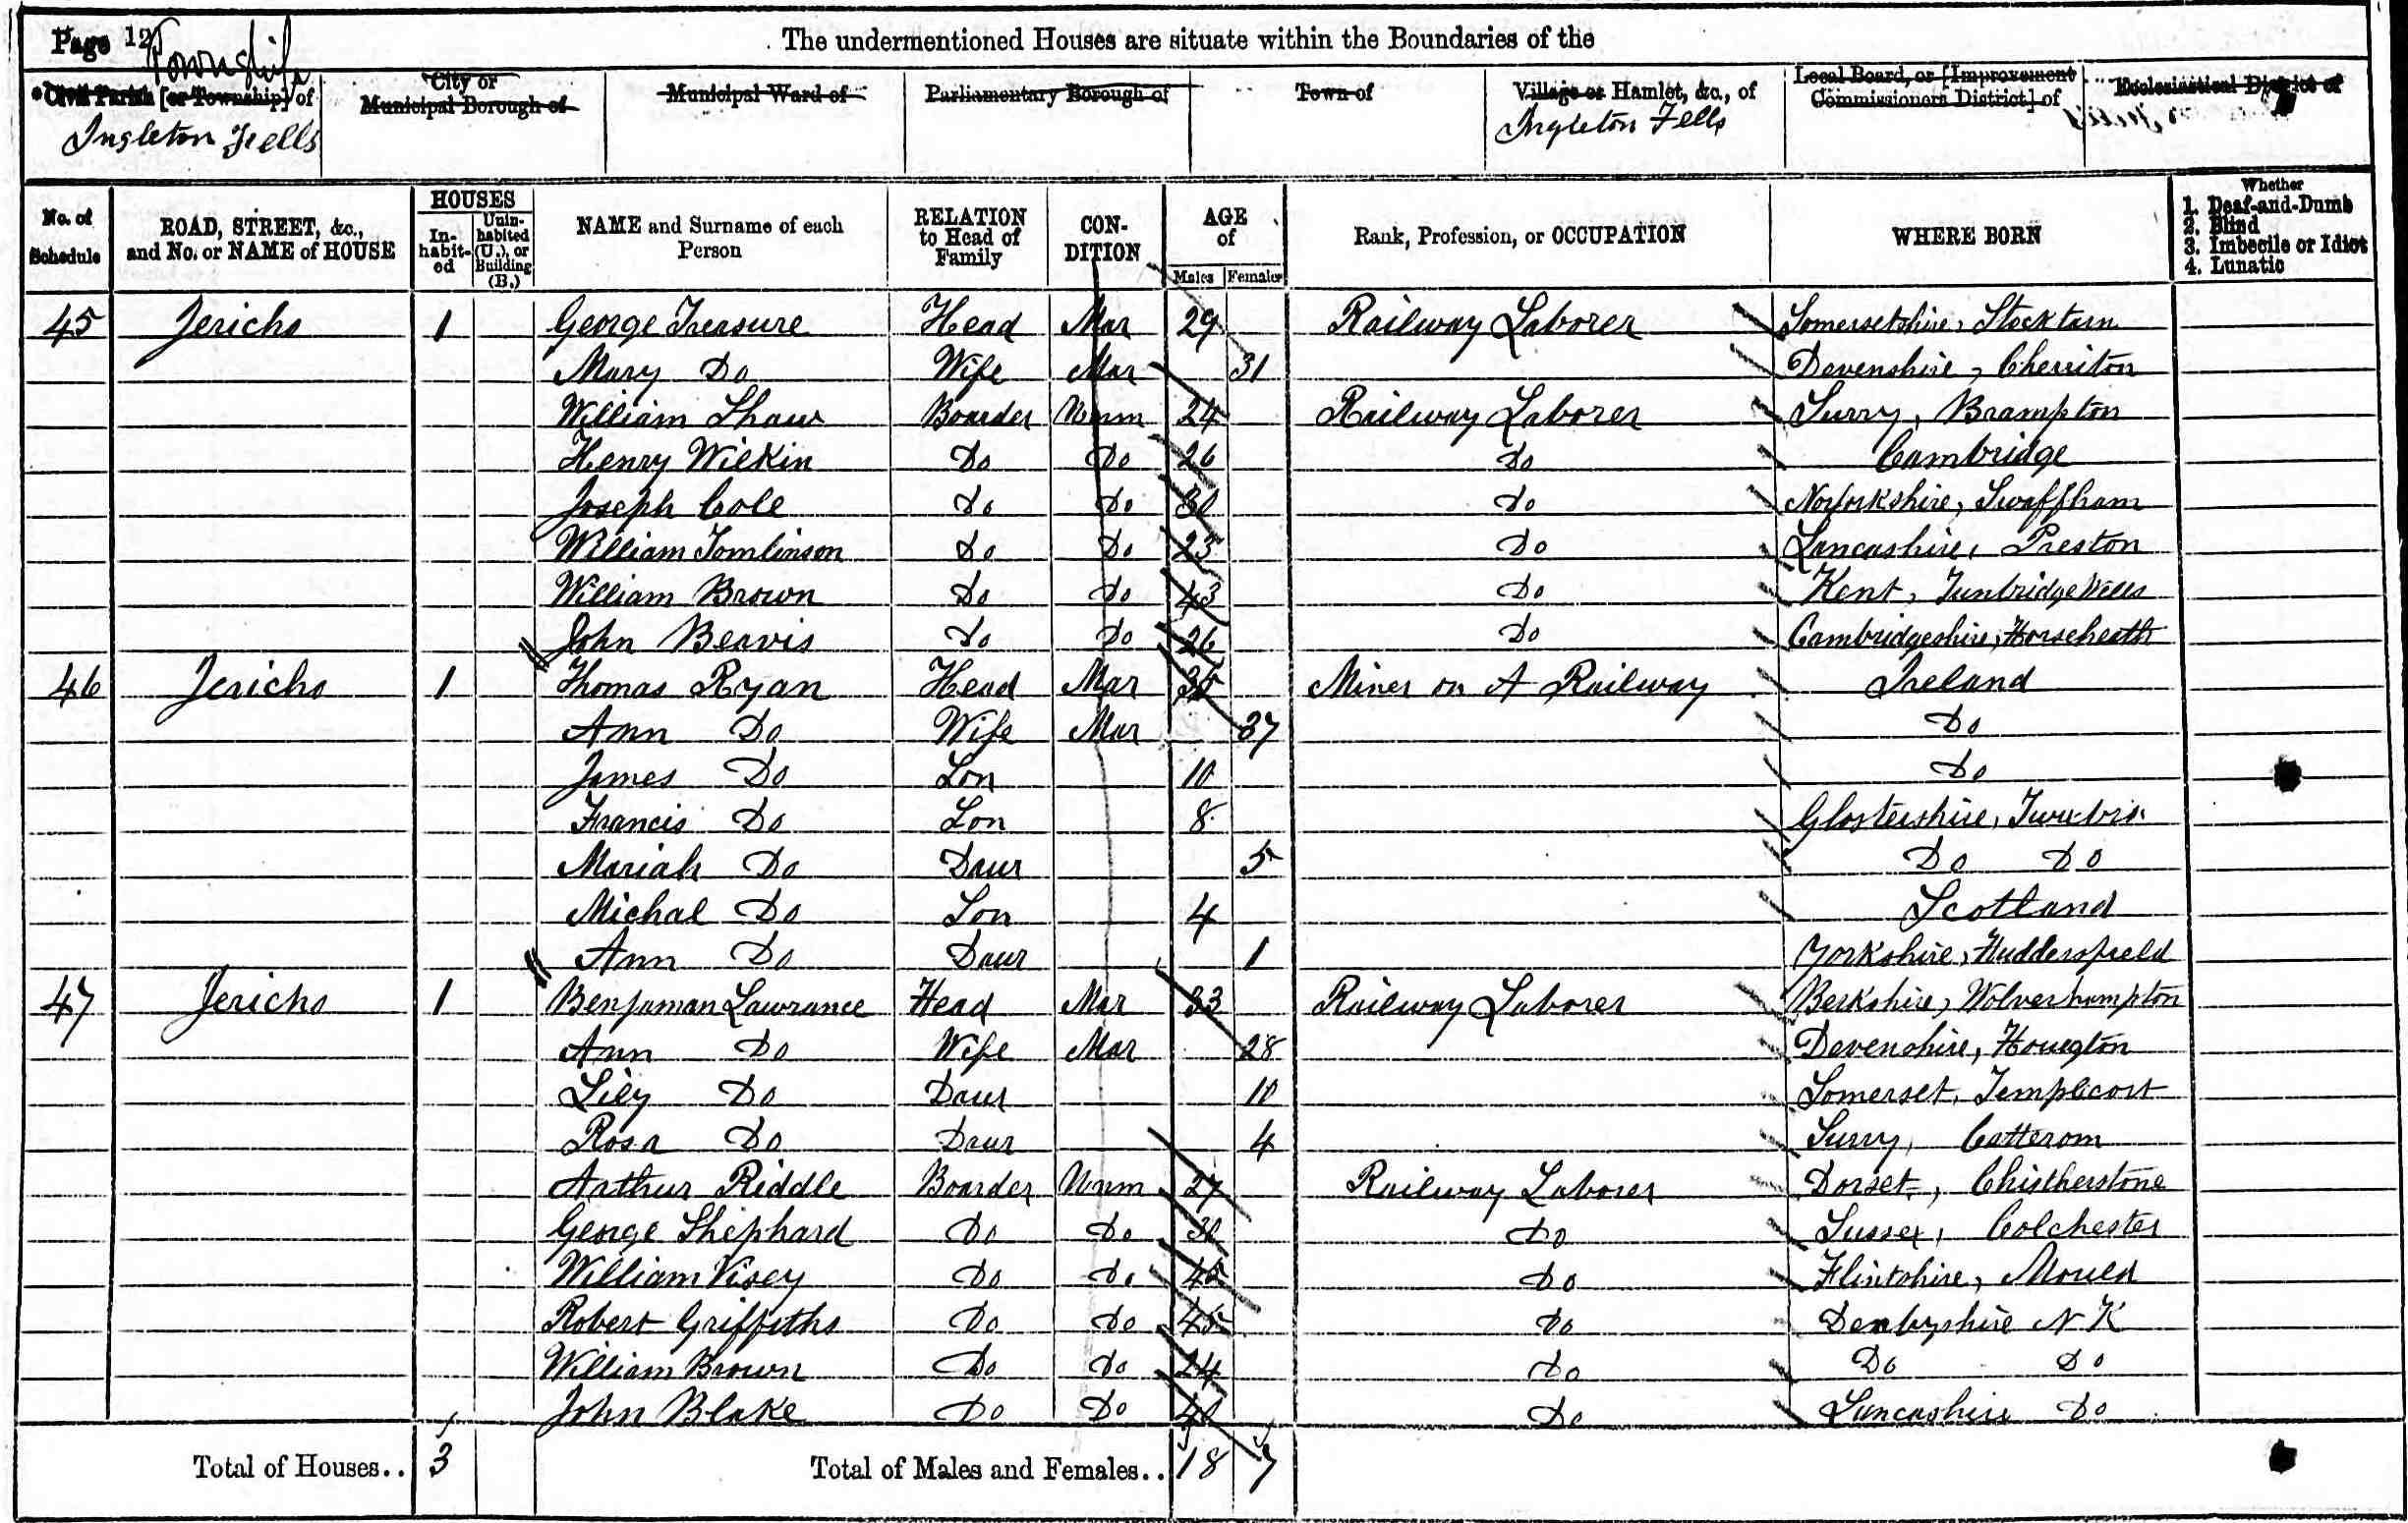 Page 12
The undermentioned Houses are situate within the Boundaries of the
Township
Civil Parish [or Township] of
City or Municipal Borough of
Municipal Ward of
Parliamentary Borough of
Town of
Village or Hamlet, &c., of
Local Board, or [Improvement Commissioners District] of
Ecclesiastical District of
Ingleton Fells
Ingleton Fells
No. of Schedule
ROAD, STREET, &c., and No. or NAME of HOUSE
HOUSES
In-habit-ed
Unin-habited (U.), or Building (B.)
NAME and Surname of each Person
RELATION to Head of Family
CON-DITION
AGE of
Males Females
Rank, Profession, or OCCUPATION
WHERE BORN
Whether
1. Deaf-and-Dumb
2. Blind
3. Imbecile or Idiot
4. Lunatic
45 Jericho 1 George Treasure Head Mar 29 Railway Laborer Somersetshire, Stocktarn
Mary Do Wife Mar 31 Devenshire, Cherriton
William Shaw Boarder Unm 24 Railway Laborer Surry, Brampton
Henry Wilkin Do Do 26 Do Cambridge
Joseph Cole Do Do 30 Do Norforkshire, Swaffham
William Tomlinson Do Do 25 Do Lancashire, Preston
William Brown Do Do 43 Do Kent, Tunbridge Wells
John Beavis Do Do 26 Do Cambridgeshire, Horseheath
46 Jericho 1 Thomas Ryan Head Mar 35 Miner on A Railway Ireland
Ann Do Wife Mar 37 Do
James Do Son 10 Do
Francis Do Son 8 Glostershire,
Mariah Do Daur 5 Do Do
Michal Do Son 4 Scotland
Ann Do Daur 1 Yorkshire, Huddersfield
47 Jericho 1 Benjaman Lawrance Head Mar 33 Railway Laborer Berkshire, Wolverhampton
Ann Do Wife Mar 28 Devenshire,
Lily Do Daur 10 Somerset, Templecort
Rosa Do Daur 4 Surry, Catterom
Arthur Riddle Boarder Unm 27 Railway Laborer Dorset, Chistherstone
George Shephard Do Do Do Sussex, Colchester
William Visey Do Do 45 Do Flintshire, Mould
Robert Griffiths Do Do 45 Do Denbyshire N K
William Brown Do Do 24 Do Do Do
John Blake Do Do 40 Do Lancashire Do
Total of Houses.. 3
Total of Males and Females.. 18 7